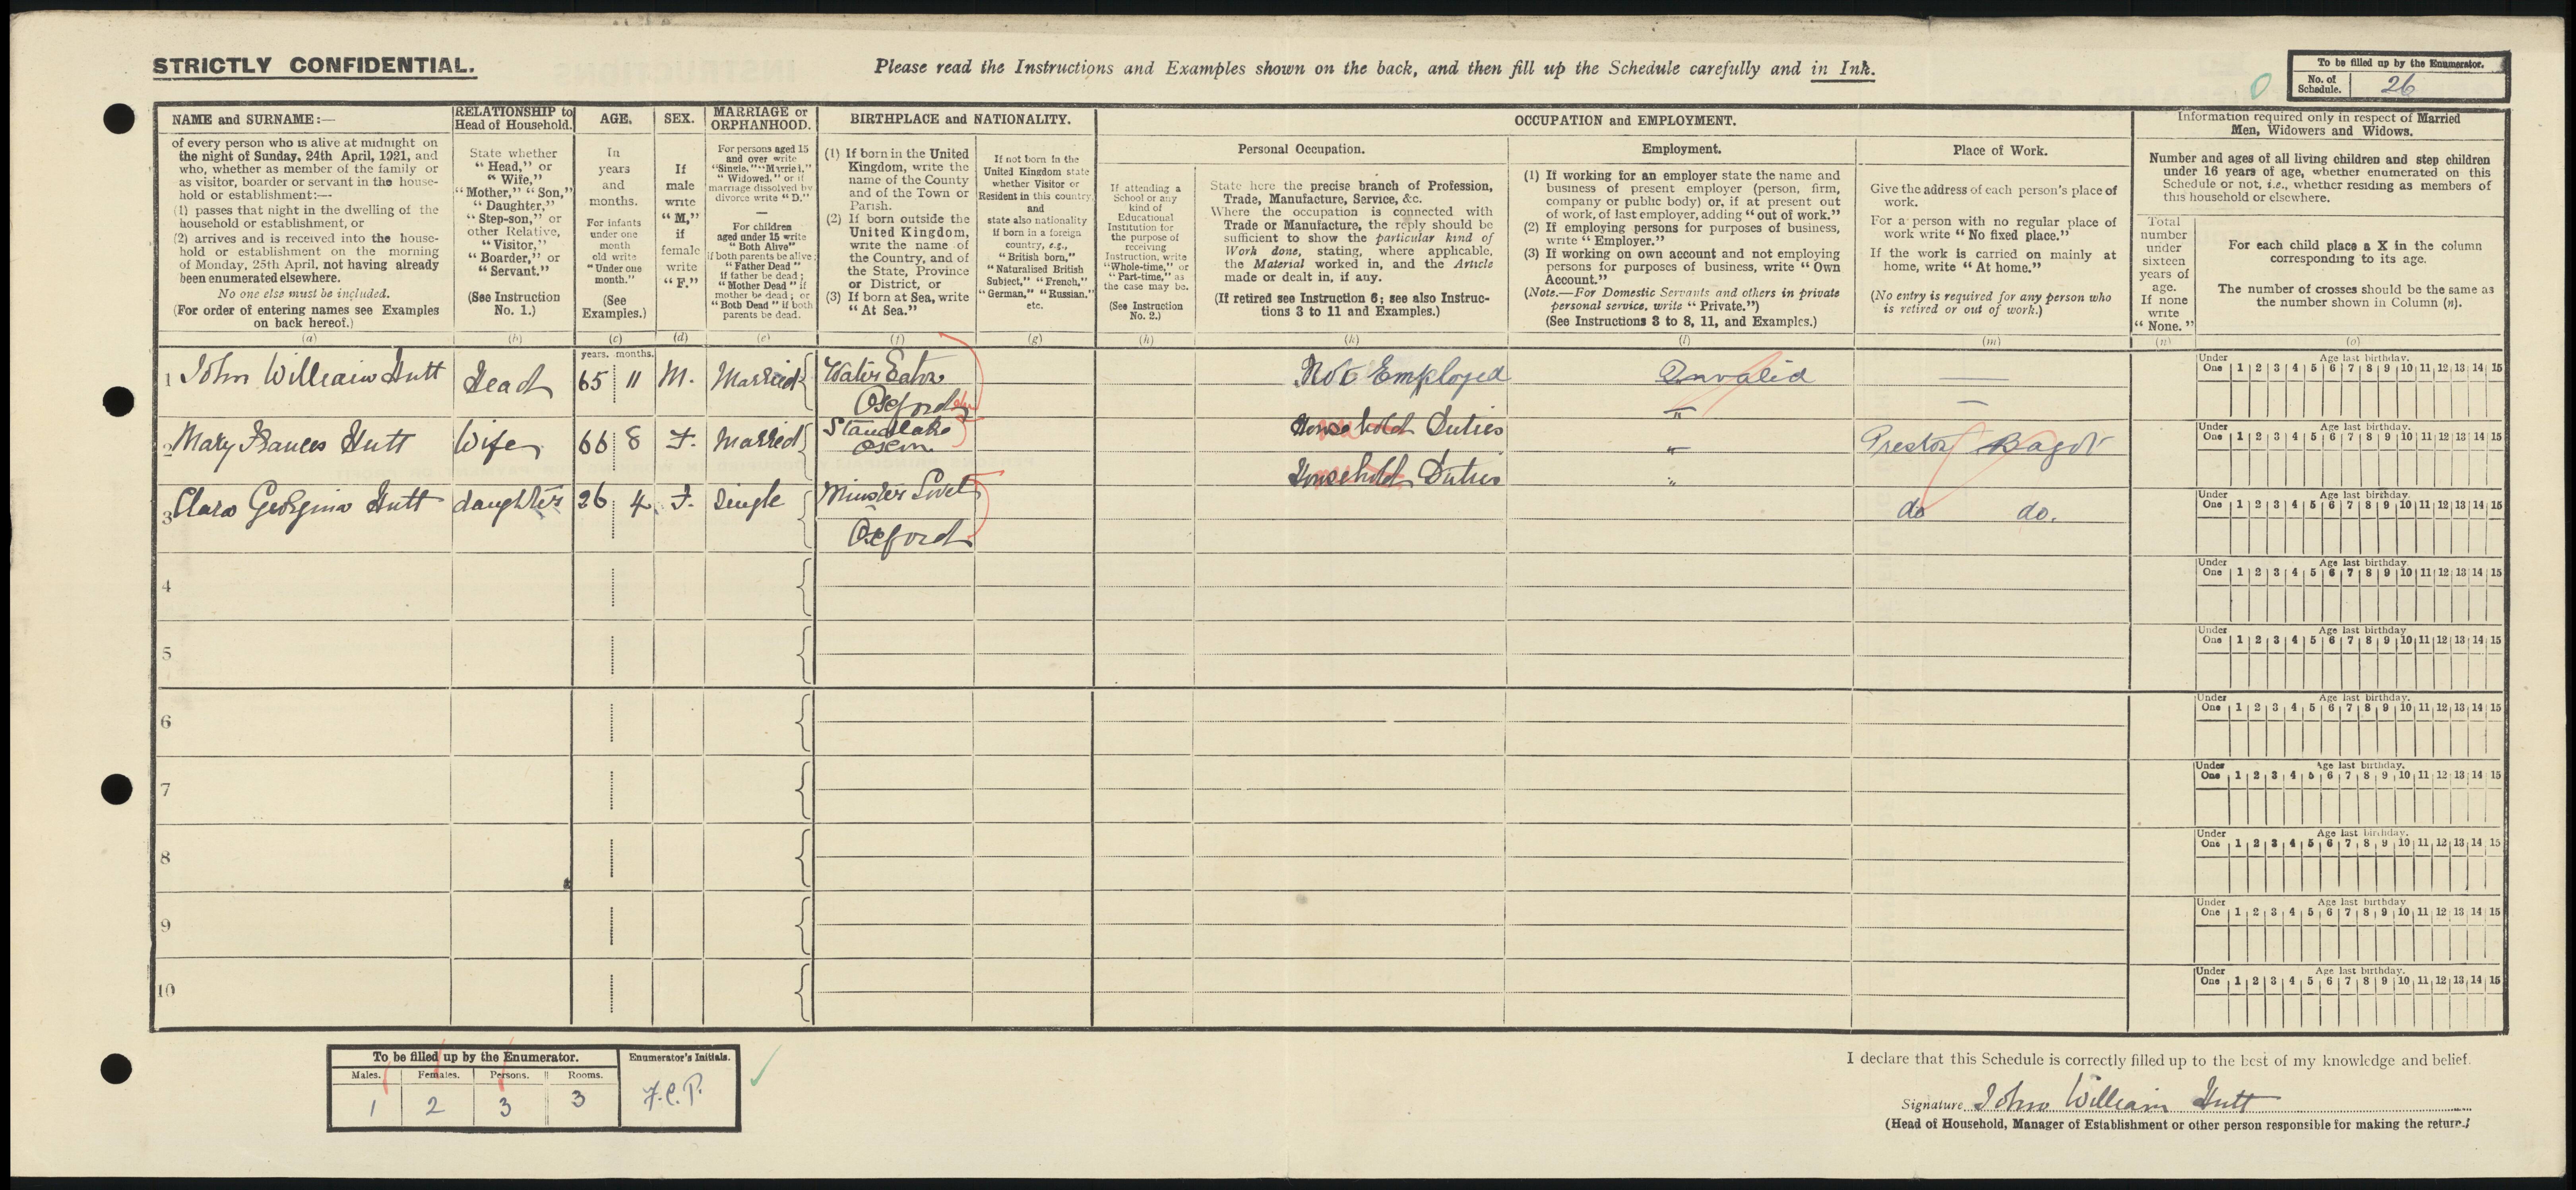 STRICTLY CONFIDENTIAL.
Please read the Instructions and Examples shown on the back, and then fill up the Schedule carefully and in Ink.
To be filled up by the Enumerator.
No. of Schedule. 26
NAME and SURNAME:—
of every person who is alive at midnight on
the night of Sunday, 24th April, 1921, and
who, whether as member of the family or
as visitor, boarder or servant in the house-
hold or establishment:—
(1) passes that night in the dwelling of the
household or establishment, or
(2) arrives and is received into the house-
hold or establishment on the morning
of Monday, 25th April, not having already
been enumerated elsewhere.
No one else must be included.
(For order of entering names see Examples
on back hereof.)
(a)
RELATIONSHIP to
Head of Household.
State whether
"Head," or
"Wife,"
"Mother," "Son,"
"Daughter,"
"Step-son," or
other Relative,
"Visitor,"
"Boarder," or
"Servant."
(See Instruction
No. 1.)
(b)
AGE.
In
years
and
months.
For infants
under one
month
old write
"Under one
month."
(See
Examples.)
(c)
SEX.
If
male
write
"M,"
if
female
write
"F."
(d)
MARRIAGE or
ORPHANHOOD.
For persons aged 15
and over write
"Single," "Married,"
"Widowed," or if
marriage dissolved by
divorce write "D."
—
For children
aged under 15 write
"Both Alive"
if both parents be alive;
"Father Dead"
if father be dead;
"Mother Dead" if
mother be dead; or
"Both Dead" if both
parents be dead.
(e)
BIRTHPLACE and NATIONALITY.
(1) If born in the United
Kingdom, write the
name of the County
and of the Town or
Parish.
(2) If born outside the
United Kingdom,
write the name of
the Country, and of
the State, Province
or District, or
(3) If born at Sea, write
"At Sea."
(f)
If not born in the
United Kingdom state
whether Visitor or
Resident in this country,
and
state also nationality
if born in a foreign
country, e.g.,
"British born,"
"Naturalised British
Subject," "French,"
"German," "Russian."
etc.
(g)
OCCUPATION and EMPLOYMENT.
If attending a
School or any
kind of
Educational
Institution for
the purpose of
receiving
Instruction, write
"Whole-time," or
"Part-time," as
the case may be.
(See Instruction
No. 2.)
(h)
Personal Occupation.
State here the precise branch of Profession,
Trade, Manufacture, Service, &c.
Where the occupation is connected with
Trade or Manufacture, the reply should be
sufficient to show the particular kind of
Work done, stating, where applicable,
the Material worked in, and the Article
made or dealt in, if any.
(If retired see Instruction 6; see also Instruc-
tions 3 to 11 and Examples.)
(k)
Employment.
(1) If working for an employer state the name and
business of present employer (person, firm,
company or public body) or, if at present out
of work, of last employer, adding "out of work."
(2) If employing persons for purposes of business,
write "Employer."
(3) If working on own account and not employing
persons for purposes of business, write "Own
Account."
(Note.—For Domestic Servants and others in private
personal service, write "Private.")
(See Instructions 3 to 8, 11, and Examples.)
(l)
Place of Work.
Give the address of each person's place of
work.
For a person with no regular place of
work write "No fixed place."
If the work is carried on mainly at
home, write "At home."
(No entry is required for any person who
is retired or out of work.)
(m)
Information required only in respect of Married
Men, Widowers and Widows.
Number and ages of all living children and step children
under 16 years of age, whether enumerated on this
Schedule or not, i.e., whether residing as members of
this household or elsewhere.
Total
number
under
sixteen
years of
age.
If none
write
"None."
(n)
For each child place a X in the column
corresponding to its age.
The number of crosses should be the same as
the number shown in Column (n).
(o)
years. months.
1 John William Hutt Head 65 11 M. Married Water Eaton Oxford Not Employed Invalid —
2 Mary Frances Hutt Wife 66 8 F. Married Standlake Oxon Household Duties " Preston Bagot
3 Clara Georgina Hutt daughter 26 4 F. Single Minster Lovel Oxford Household Duties " do do.
4
5
6
7
8
9
10
Under One Age last birthday. 1 2 3 4 5 6 7 8 9 10 11 12 13 14 15
Under One Age last birthday. 1 2 3 4 5 6 7 8 9 10 11 12 13 14 15
Under One Age last birthday. 1 2 3 4 5 6 7 8 9 10 11 12 13 14 15
Under One Age last birthday. 1 2 3 4 5 6 7 8 9 10 11 12 13 14 15
Under One Age last birthday 1 2 3 4 5 6 7 8 9 10 11 12 13 14 15
Under One Age last birthday. 1 2 3 4 5 6 7 8 9 10 11 12 13 14 15
Under One Age last birthday. 1 2 3 4 5 6 7 8 9 10 11 12 13 14 15
Under One Age last birthday. 1 2 3 4 5 6 7 8 9 10 11 12 13 14 15
Under One Age last birthday 1 2 3 4 5 6 7 8 9 10 11 12 13 14 15
Under One Age last birthday. 1 2 3 4 5 6 7 8 9 10 11 12 13 14 15
To be filled up by the Enumerator.
Males. Females. Persons. Rooms.
1 2 3 3
Enumerator's Initials.
F.C.P.
I declare that this Schedule is correctly filled up to the best of my knowledge and belief.
Signature John William Hutt
(Head of Household, Manager of Establishment or other person responsible for making the return.)